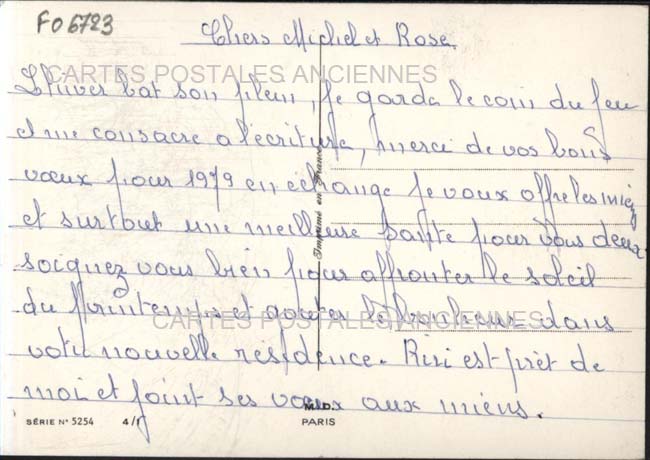 FO 6723
Chers Michel et Rose.
CARTES POSTALES ANCIENNES
L'hiver bat son plein, je garde le coin du feu
et me consacre a l'écriture, merci de vos bons
vœux pour 1979 en échange je vous offre les miens
et surtout une meilleure santé pour vous deux.
soignez vous bien pour affronter le soleil
du printemps et goûter le bonheur dans
CARTES POSTALES ANCIENNES
votre nouvelle résidence. Riri est prêt de
moi et joint ses vœux aux miens.
Imprimé en France
SÉRIE N° 5254 4/1
M.D.
PARIS